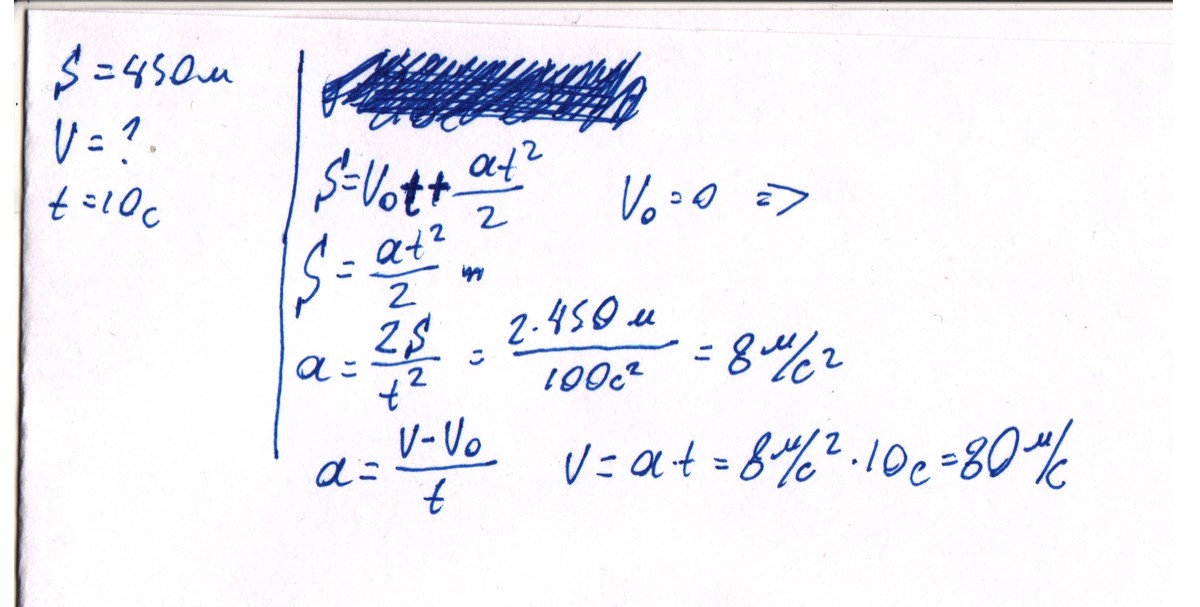 S = 450м
V = ?
t = 10с
S = V₀t + at²/2 V₀ = 0 =>
S = at²/2
a = 2S/t² = 2·450м/100с² = 8 м/с²
a = V - V₀/t V = a·t = 8 м/с² · 10с = 80 м/с